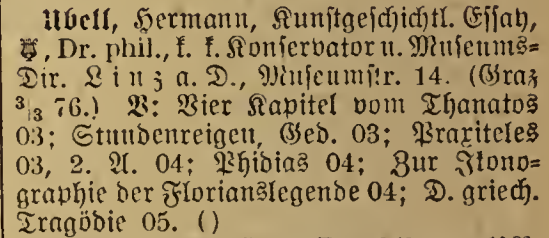 Ubell, Hermann, Kunstgeschichtl. Essay,
, Dr. phil., k. k. Konservator u. Museums=
Dir. Linz a. D., Museumstr. 14. (Graz
3/3 76.) V: Vier Kapitel vom Thanatos
03; Stundenreigen, Ged. 03; Praxiteles
03, 2. A. 04; Phidias 04; Zur Ikono-
graphie der Florianslegende 04; D. griech.
Tragödie 05. ()